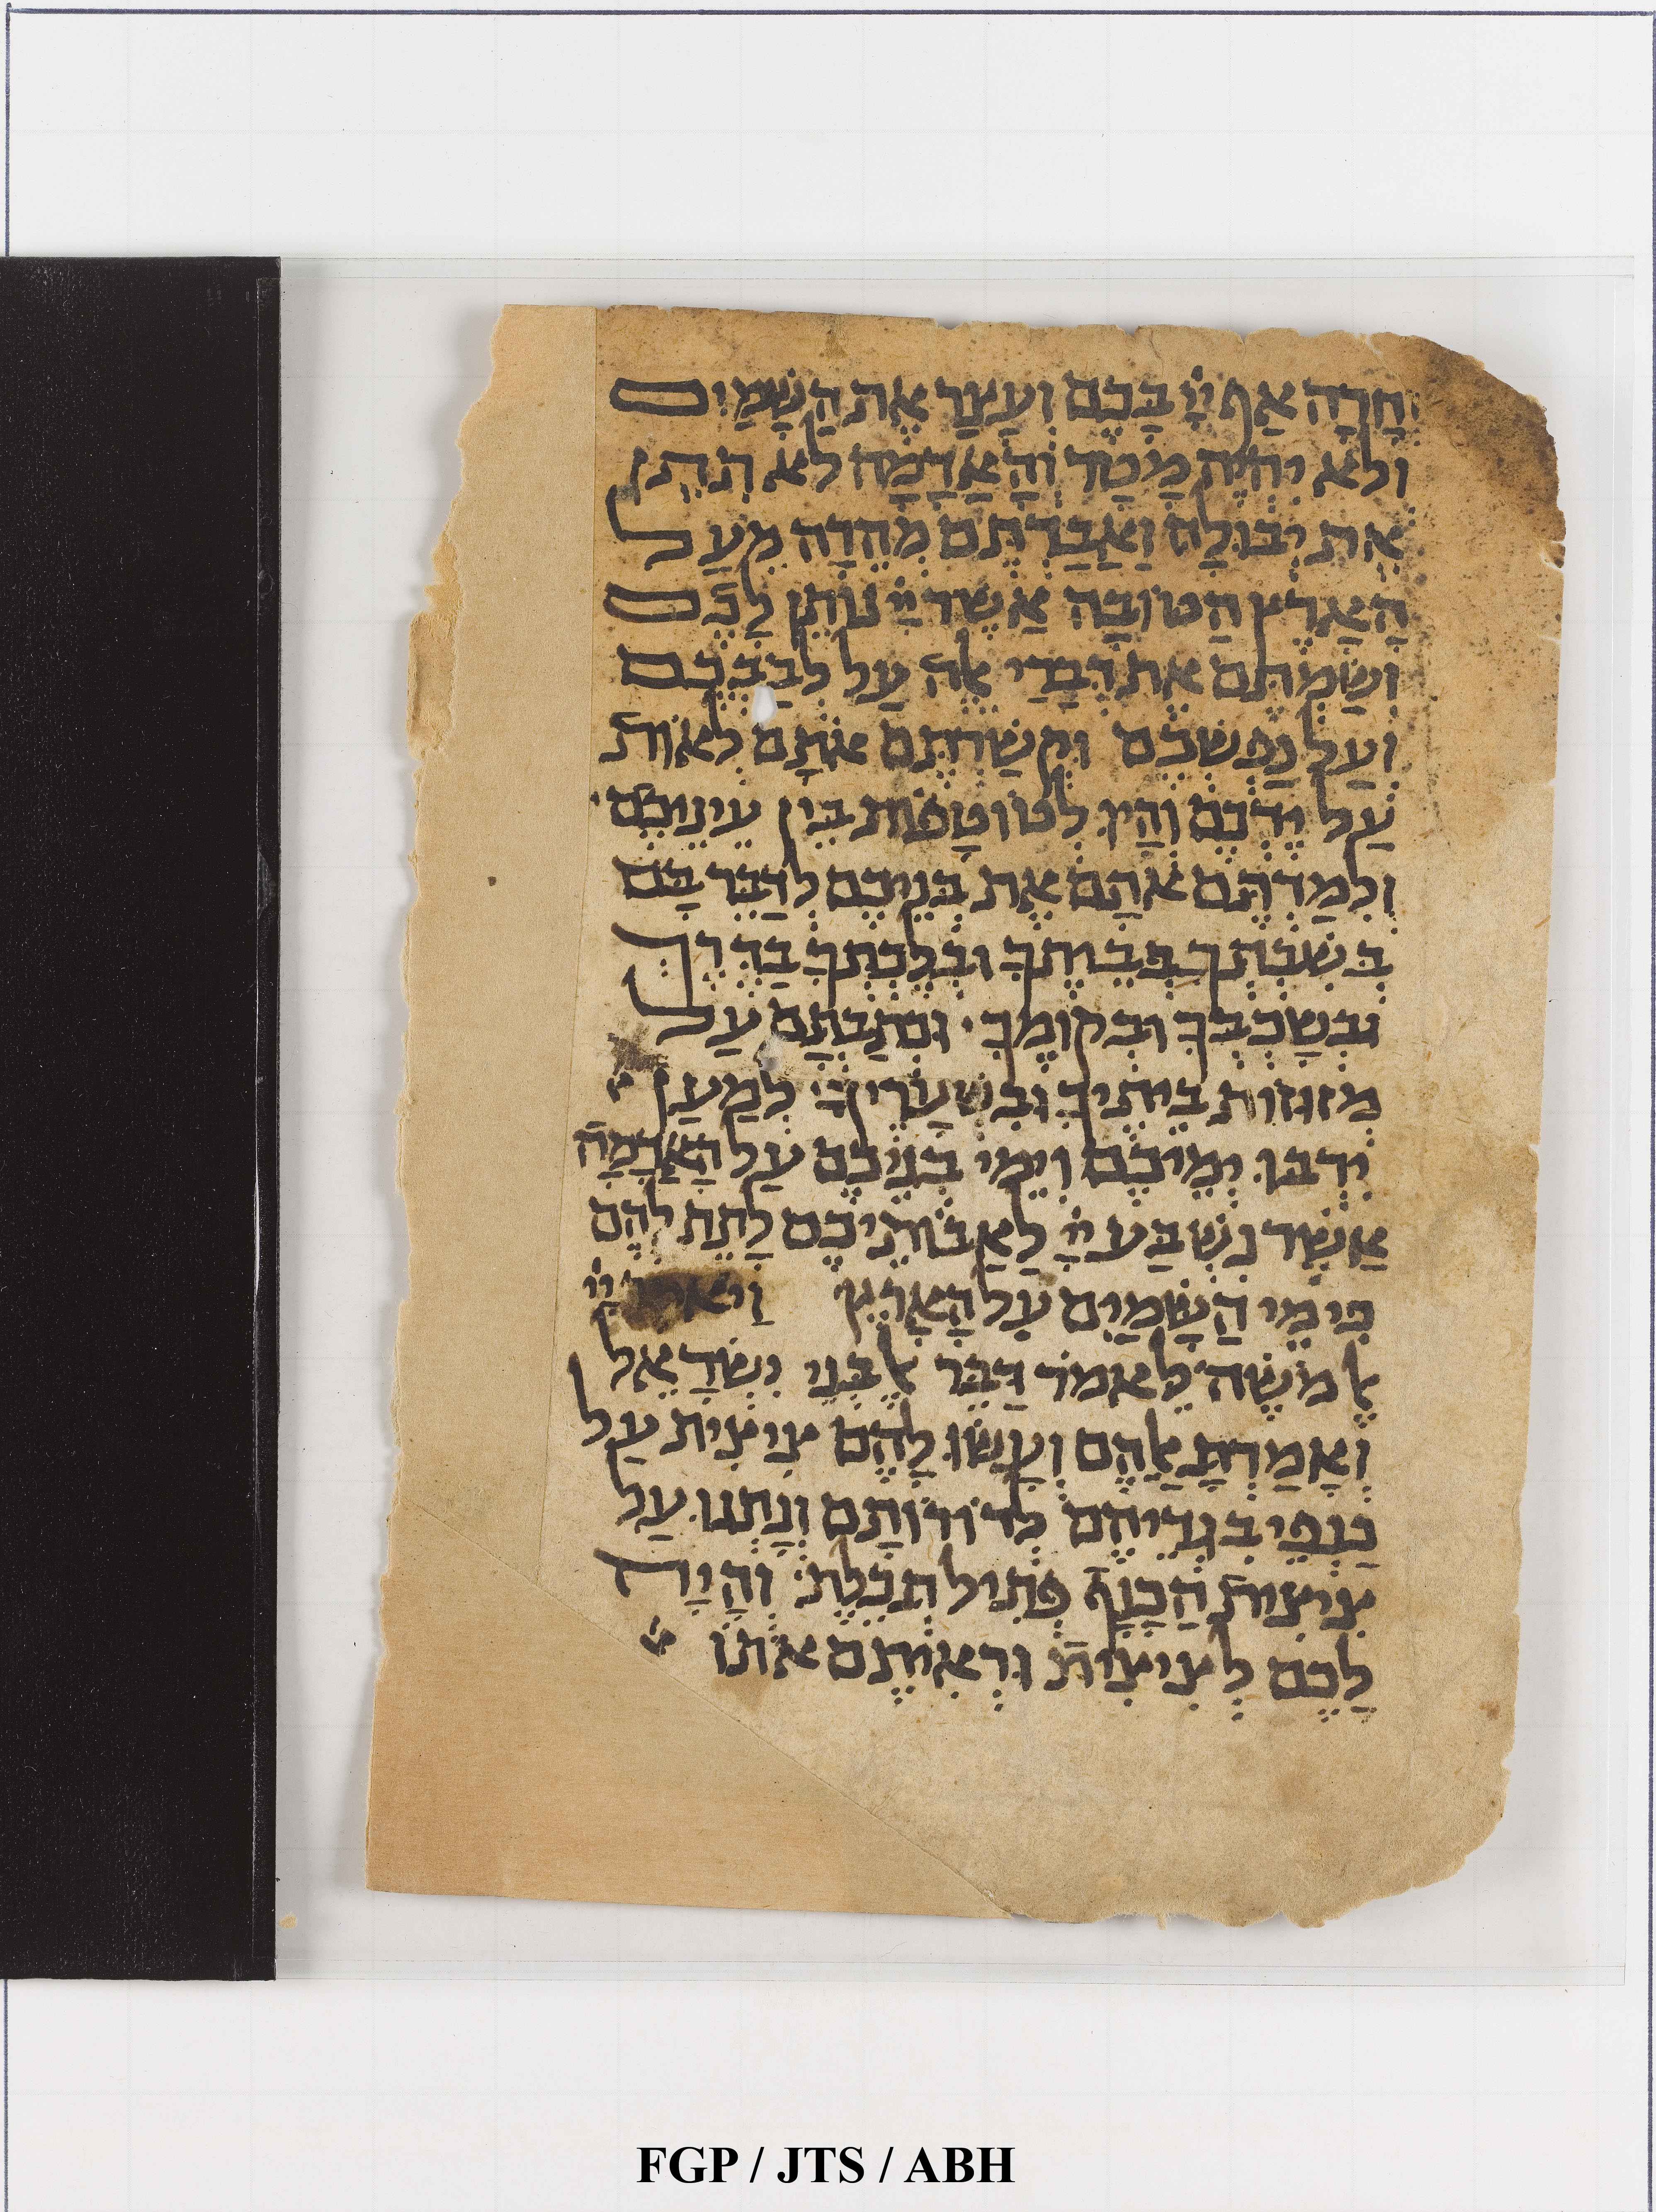 וְחָרָה אַף יְיָ בָּכֶם וְעָצַר אֶת הַשָּׁמַיִם
וְלֹא יִהְיֶה מָטָר וְהָאֲדָמָה לֹא תִתֵּן
אֶת יְבוּלָהּ וַאֲבַדְתֶּם מְהֵרָה מֵעַל
הָאָרֶץ הַטּוֹבָה אֲשֶׁר יְיָ נוֹתֵן לָכֶם
וְשַׂמְתֶּם אֶת דְּבָרַי אֵלֶּה עַל לְבַבְכֶם
וְעַל נַפְשְׁכֶם וּקְשַׁרְתֶּם אֹתָם לְאוֹת
עַל יֶדְכֶם וְהָיוּ לְטוֹטָפוֹת בֵּין עֵינֵיכֶם
וְלִמַּדְתֶּם אֹתָם אֶת בְּנֵיכֶם לְדַבֵּר בָּם
בְּשִׁבְתְּךָ בְּבֵיתֶךָ וּבְלֶכְתְּךָ בַדֶּרֶךְ
וּבְשָׁכְבְּךָ וּבְקוּמֶךָ וּכְתַבְתָּם עַל
מְזוּזוֹת בֵּיתֶיךָ וּבִשְׁעָרֶיךָ לְמַעַן
יִרְבּוּ יְמֵיכֶם וִימֵי בְנֵיכֶם עַל הָאֲדָמָה
אֲשֶׁר נִשְׁבַּע יְיָ לַאֲבוֹתֵיכֶם לָתֵת לָהֶם
כִּימֵי הַשָּׁמַיִם עַל הָאָרֶץ וַיֹּאמֶר יְיָ
אֶל מֹשֶׁה לֵּאמֹר דַּבֵּר אֶל בְּנֵי יִשְׂרָאֵל
וְאָמַרְתָּ אֲלֵהֶם וְעָשׂוּ לָהֶם צִיצִית עַל
כַּנְפֵי בִגְדֵיהֶם לְדוֹרוֹתָם וְנָתְנוּ עַל
צִיצִית הַכָּנָף פְּתִיל תְּכֵלֶת וְהָיָה
לָכֶם לְצִיצִית וּרְאִיתֶם אֹתוֹ
FGP / JTS / ABH